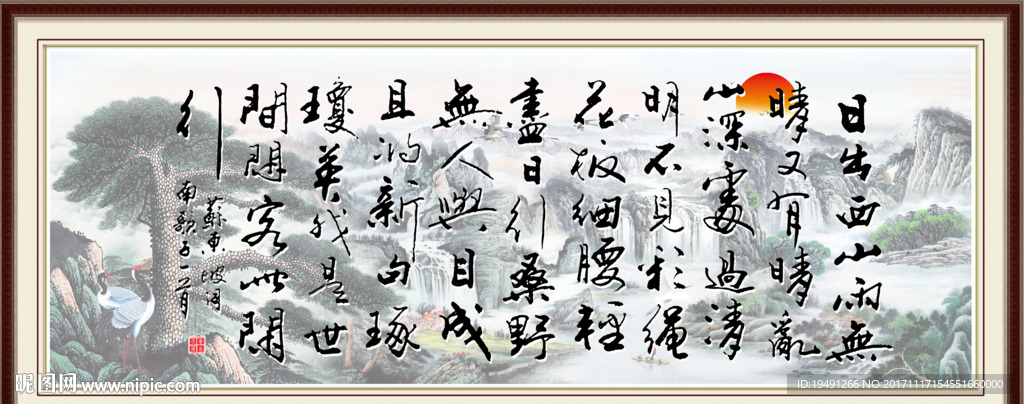 日出西山雨無
晴又有晴亂
山深處過清
明不見彩繩
花板細腰輕
盡日行桑野
無人與目成
且將新句琢
瓊英我是世
間閒客此閒
行
蘇東坡词
南歌子一首
昵图网 www.nipic.com
ID:19491266 NO:20171117154551660000